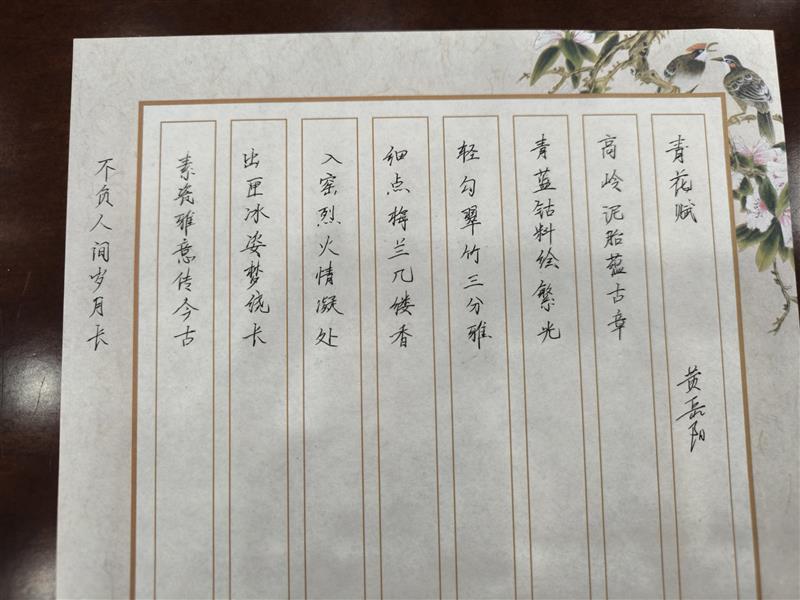 青花赋
黄岳阳
高岭泥胎蕴古章
青蓝钴料绘繁光
轻勾翠竹三分雅
细点梅兰几缕香
入窑烈火情凝处
出匣冰姿梦统卡
素瓷雅意传今古
不负人间岁月长